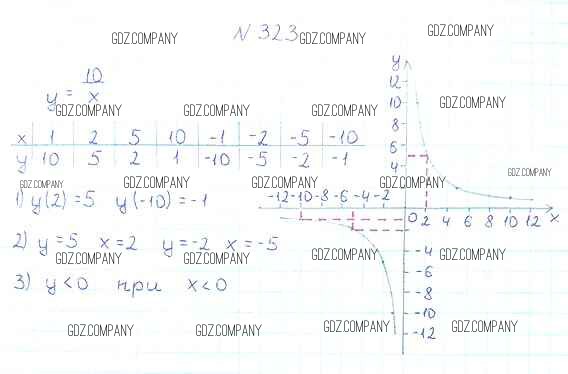 N 323
y = 10/x
x 1 2 5 10 -1 -2 -5 -10
y 10 5 2 1 -10 -5 -2 -1
1) y(2) = 5 y(-10) = -1
2) y = 5 x = 2 y = -2 x = -5
3) y < 0 при x < 0
y
12
10
8
6
4
-12 -10 -8 -6 -4 -2 0 2 4 6 8 10 12 x
-4
-6
-8
-10
-12
GDZ.COMPANY GDZ.COMPANY GDZ.COMPANY
GDZ.COMPANY GDZ.COMPANY GDZ.COMPANY GDZ.COMPANY
GDZ.COMPANY GDZ.COMPANY GDZ.COMPANY GDZ.COMPANY GDZ.COMPANY
GDZ.COMPANY GDZ.COMPANY GDZ.COMPANY GDZ.COMPANY
GDZ.COMPANY GDZ.COMPANY GDZ.COMPANY GDZ.COMPANY